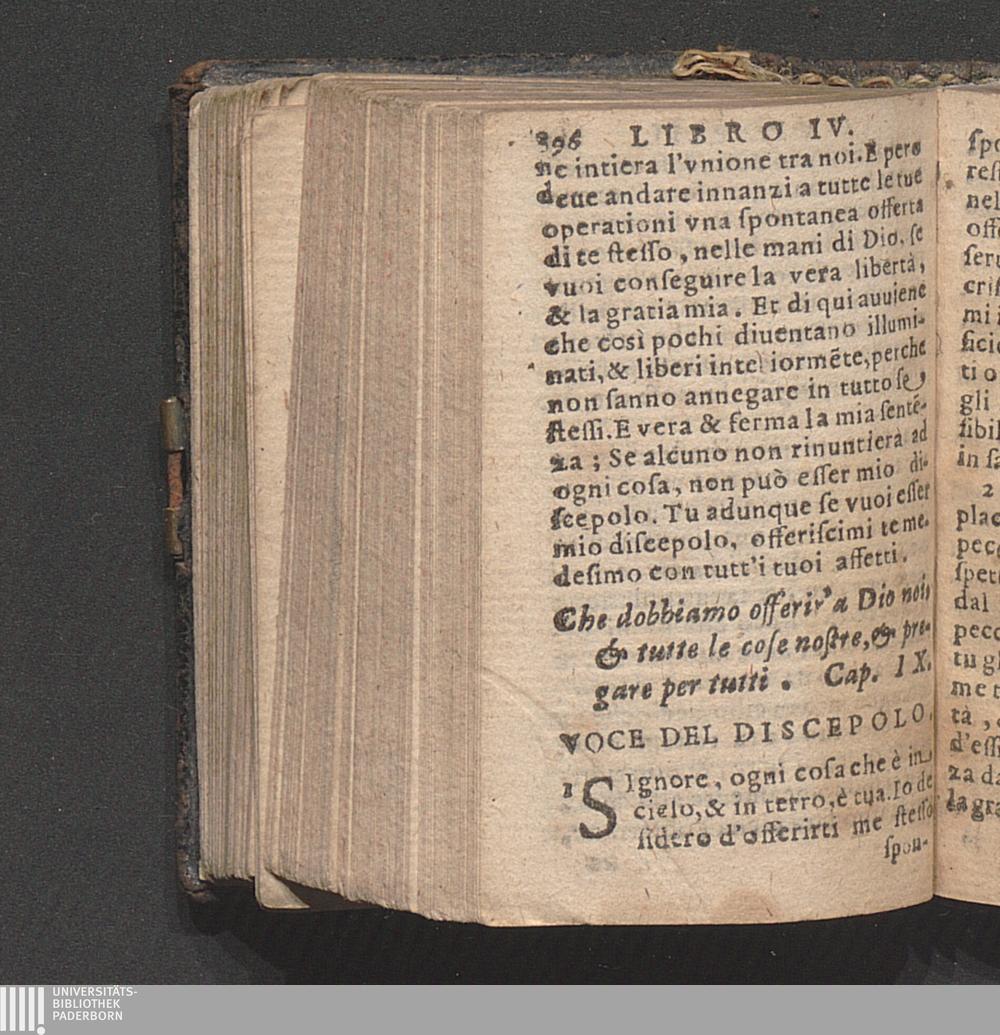 396 LIBRO IV.
ne intiera l'vnione tra noi. E però
deue andare innanzi a tutte le tue
operationi vna ſpontanea offerta
di te ſteſſo, nelle mani di Dio, ſe
vuoi conſeguire la vera libertà,
& la gratia mia. Et di qui auuiene
che così pochi diuentano illumi-
nati, & liberi inte iormẽte, perche
non ſanno annegare in tutto ſe
ſteſſi. E vera & ferma la mia ſentẽ-
za; Se alcuno non rinuntierà ad
ogni coſa, non può eſſer mio di-
ſcepolo. Tu adunque ſe vuoi eſſer
mio diſcepolo, offeriſcimi te me-
deſimo con tutt'i tuoi affetti.
Che dobbiamo offerir' a Dio noi,
& tutte le coſe noſtre, & pre-
gare per tutti. Cap. IX.
VOCE DEL DISCEPOLO.
1 SIgnore, ogni coſa che è in
cielo, & in terro, è tua. Io de
ſidero d'offerirti me ſteſſo
ſpon-
ſpo
reſ
nel
offe
ſeru
criſ
mi i
ficio
ti o
gli
ſibil
in ſa
2
plac
pecc
ſpet
dal
pecc
tu gl
me t
tà,
d'eſſ
za da
la gra
UNIVERSITÄTS-
BIBLIOTHEK
PADERBORN